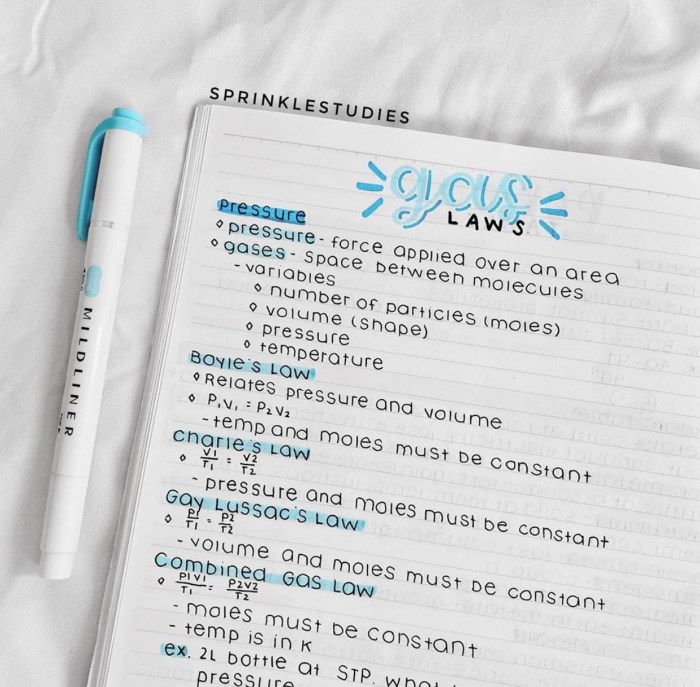 SPRINKLESTUDIES
gas
LAWS
Pressure
◊ pressure - force applied over an area
◊ gases - space between molecules
- variables
◊ number of particles (moles)
◊ volume (shape)
◊ pressure
◊ temperature
Boyle's Law
◊ Relates pressure and volume
◊ P₁V₁ = P₂V₂
- temp and moles must be constant
Charle's Law
◊ V1/T1 = V2/T2
- pressure and moles must be constant
Gay Lussac's Law
◊ P1/T1 = P2/T2
- volume and moles must be constant
Combined Gas Law
◊ P1V1/T1 = P2V2/T2
- moles must be constant
- temp is in K
ex. 2L bottle at STP. what
pressure
MILDLINER